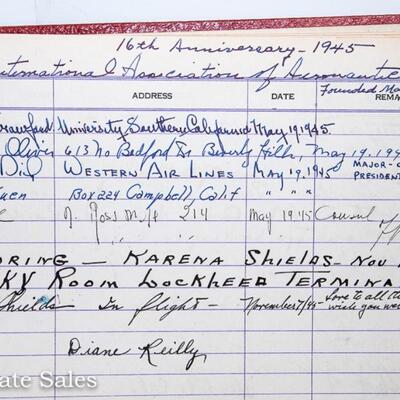 16th Anniversary - 1945
International Association of Aeronautic
Founded Ma
ADDRESS DATE REMA
Crawford University Southern California May 19 1945.
Oliver 613 No Bedford Dr Beverly Hills, May 19. 194
WESTERN AIR LINES May 19, 1945 MAJOR-
PRESIDENT
Box 224 Campbell, Calif " " "
J. Ross 214 May 1945 Consul
ORING — KARENA SHIELDS - NOV
KY ROOM LOCKHEED TERMINA
Shields In flight - November 7/45 - Love to all th
wish you we
Diane Reilly
ate Sales